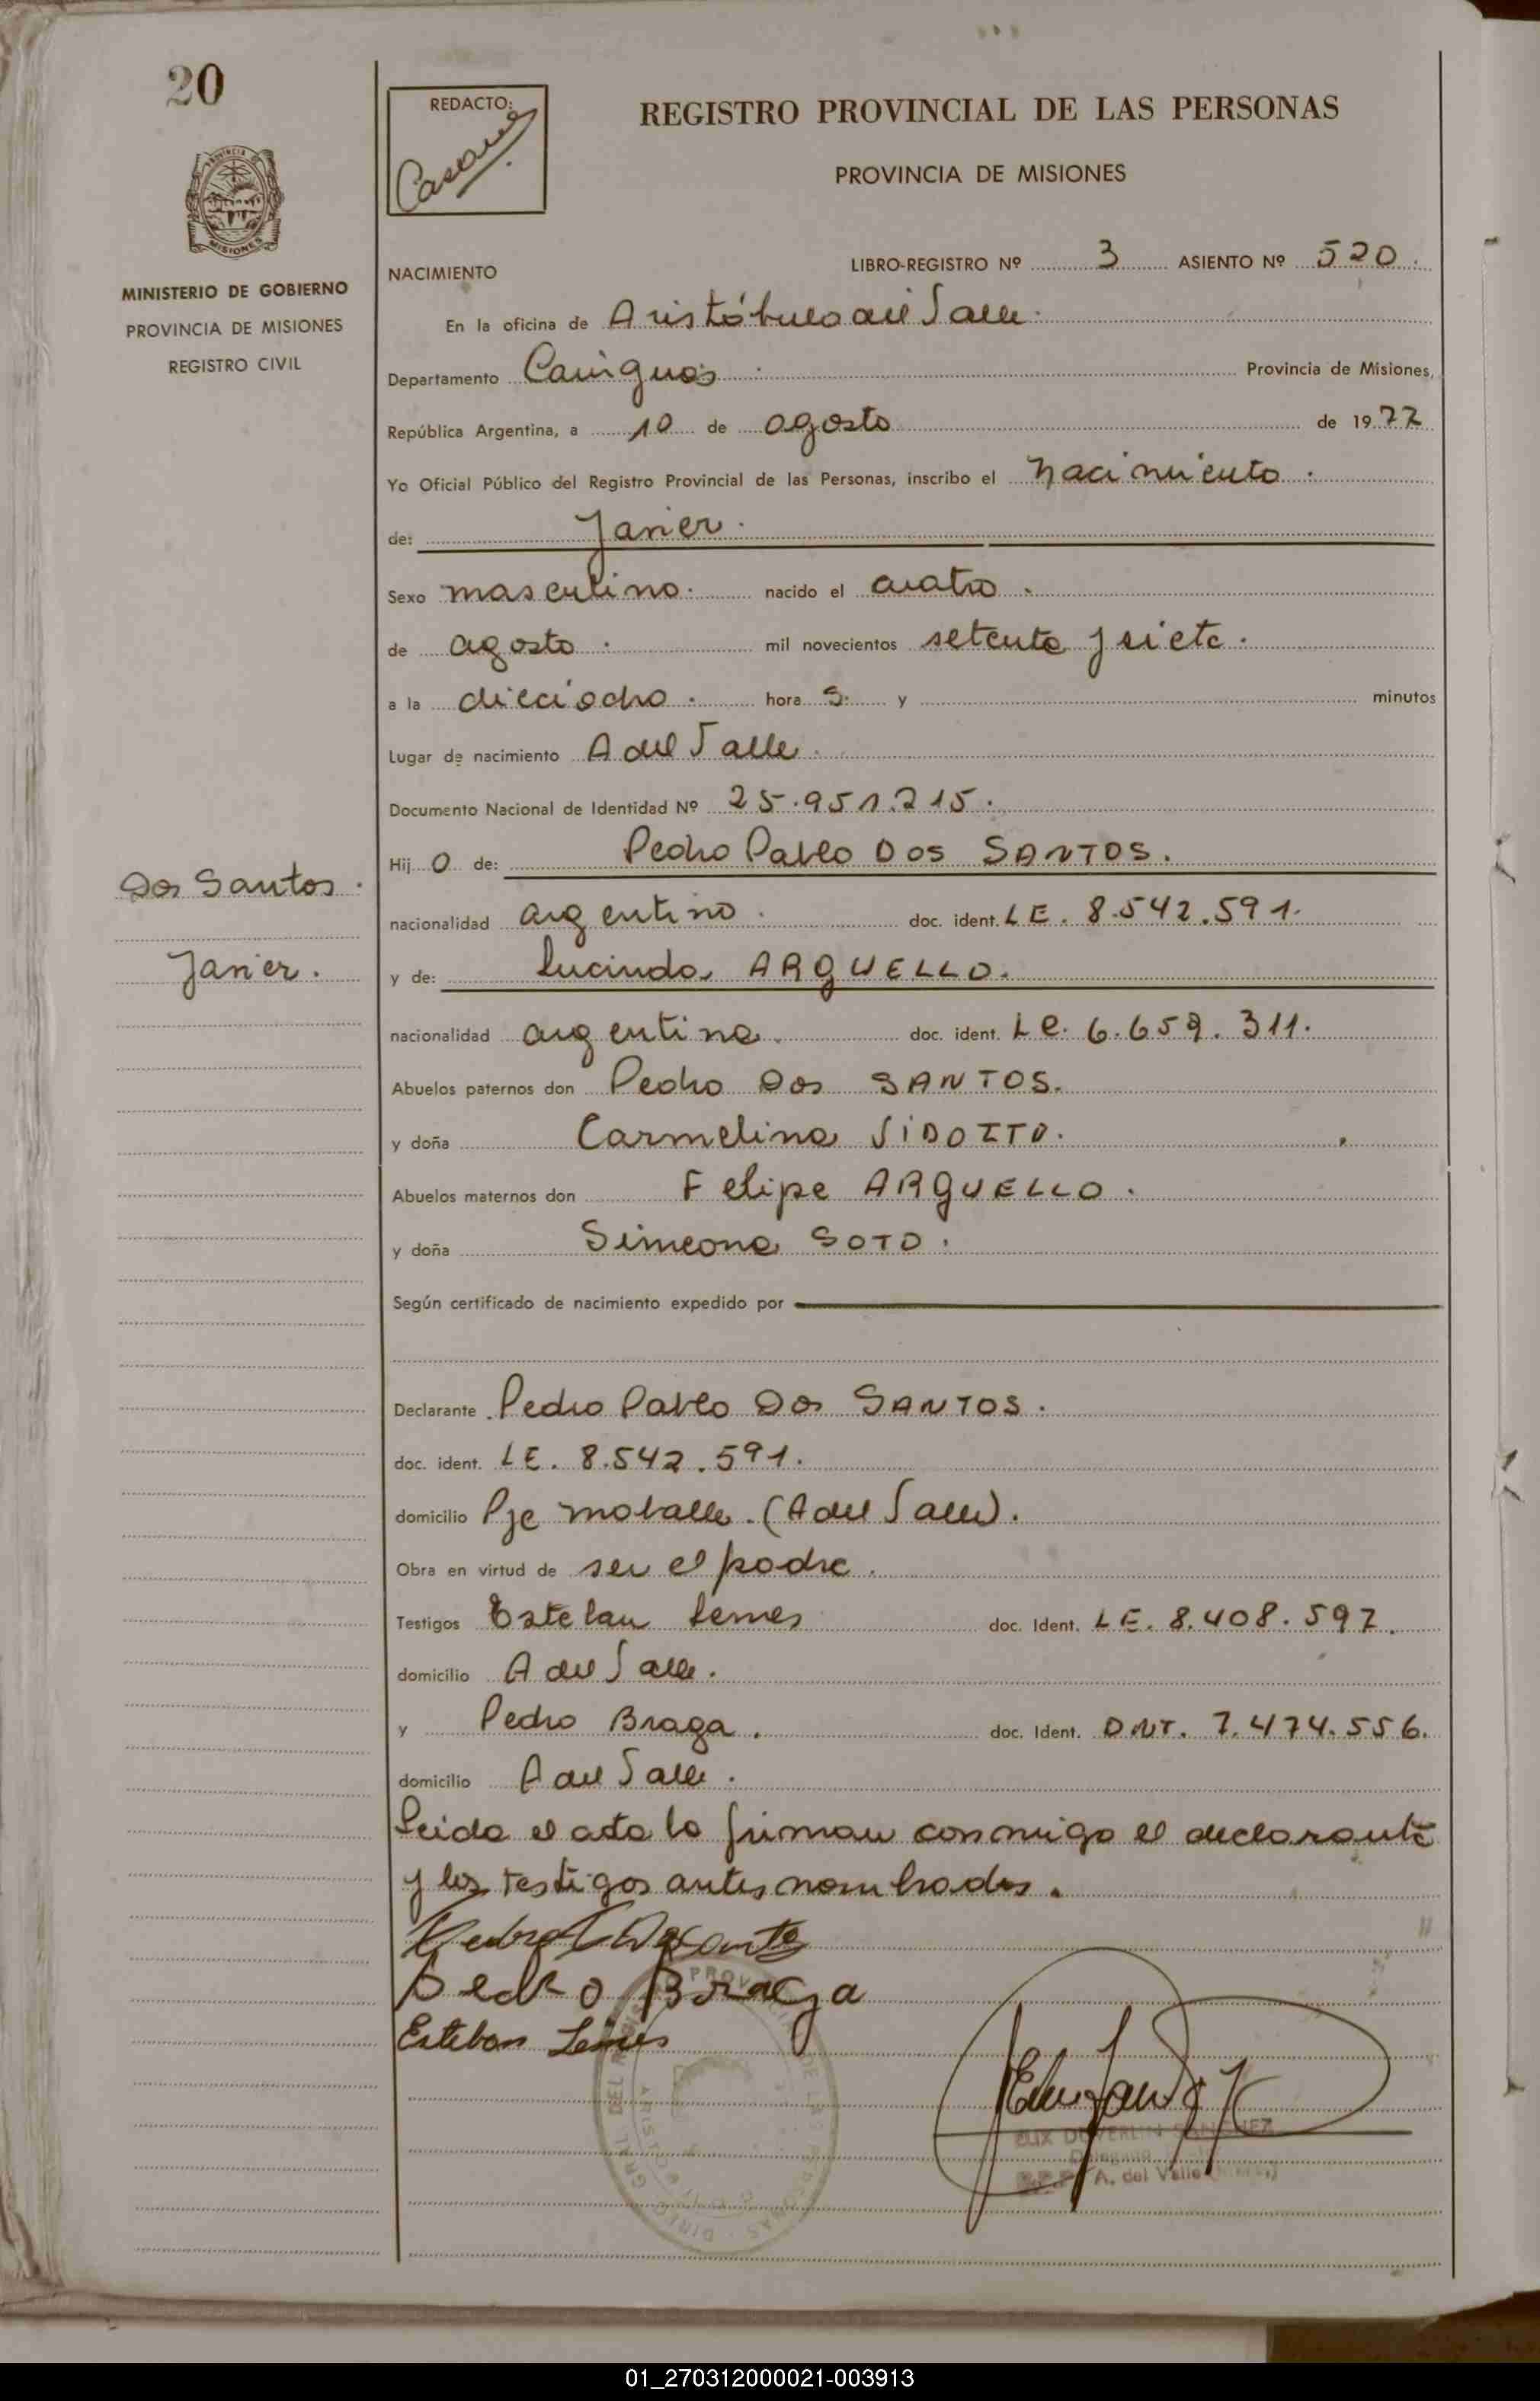 20
REDACTO:
REGISTRO PROVINCIAL DE LAS PERSONAS
PROVINCIA DE MISIONES
MISIONES
MINISTERIO DE GOBIERNO
PROVINCIA DE MISIONES
REGISTRO CIVIL
NACIMIENTO
LIBRO-REGISTRO Nº 3 ASIENTO Nº 520.
En la oficina de Aristóbulo del Valle.
Departamento Cainguás. Provincia de Misiones,
República Argentina, a 10 de agosto de 1977
Yo Oficial Público del Registro Provincial de las Personas, inscribo el nacimiento.
de: Javier.
Sexo masculino. nacido el cuatro.
de agosto. mil novecientos setenta y siete.
a la dieciocho. hora s. y minutos
Lugar de nacimiento A del Valle.
Documento Nacional de Identidad Nº 25.951.215.
Hij o de: Pedro Pablo DOS SANTOS.
Dos Santos.
nacionalidad argentino. doc. ident. LE. 8.542.591.
Javier.
y de: Lucinda ARGUELLO.
nacionalidad argentina. doc. ident. LC. 6.659.311.
Abuelos paternos don Pedro Dos SANTOS.
y doña Carmelina
Abuelos maternos don Felipe ARGUELLO.
y doña Simeona SOTO.
Según certificado de nacimiento expedido por
Declarante Pedro Pablo Dos SANTOS.
doc. ident. LE. 8.542.591.
domicilio Pje (A del Valle).
Obra en virtud de ser el padre.
Testigos Esteban Lemes doc. Ident. LE. 8.408.597.
domicilio A del Valle.
y Pedro Braga. doc. Ident. DNI. 7.474.556.
domicilio A del Valle.
Leida el acta la firman conmigo el declarante
y los testigos antes nombrados.
Pedro Braga
Esteban Lemes
A. del Valle
01_270312000021-003913